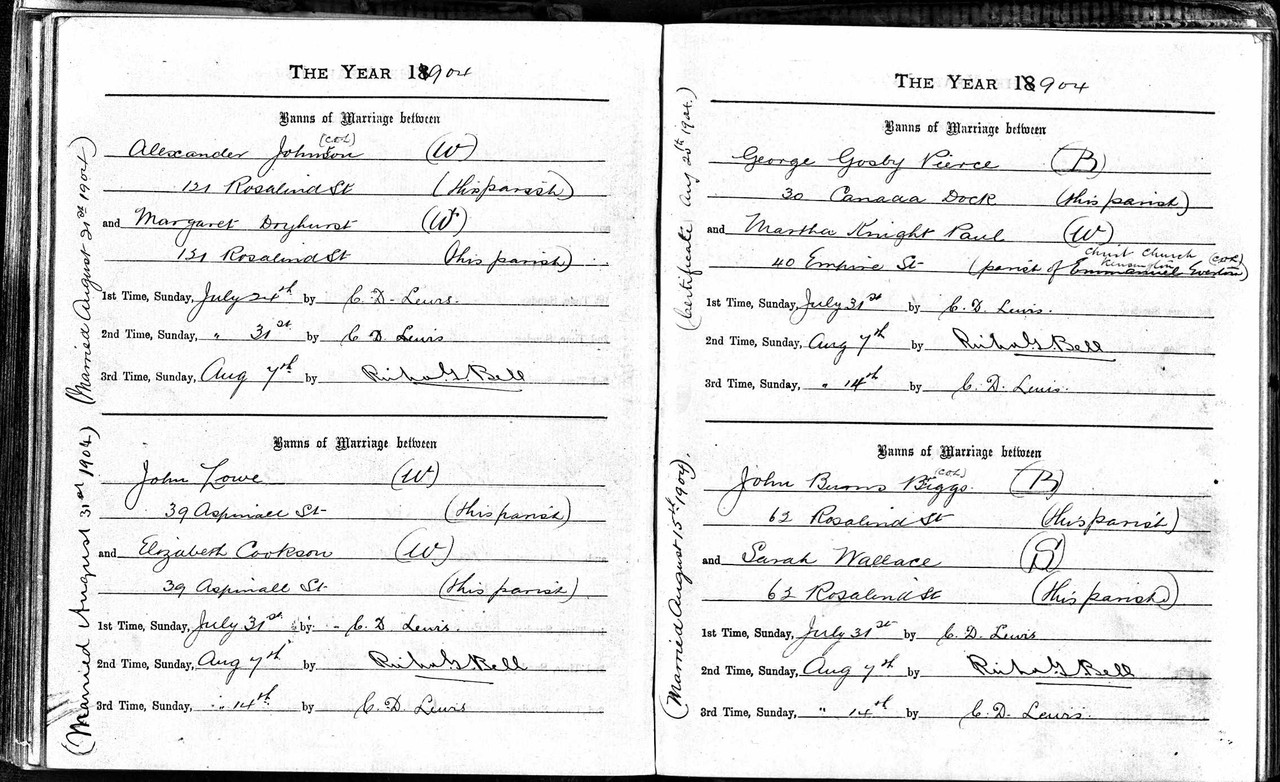 THE YEAR 18904
Banns of Marriage between
(COL)
Alexander Johnson (W)
121 Rosalind St (this parish)
and Margaret Dryhurst (W)
121 Rosalind St (this parish)
1st Time, Sunday, July 24th by C. D. Lewis.
2nd Time, Sunday, " 31st by C. D. Lewis
3rd Time, Sunday, Aug 7th by Richd G. Bell
(Married August 21st 1904)
Banns of Marriage between
John Lowe (W)
39 Aspinall St (this parish)
and Elizabeth Cookson (W)
39 Aspinall St (this parish)
1st Time, Sunday, July 31st by C. D. Lewis.
2nd Time, Sunday, Aug 7th by Richd G. Bell
3rd Time, Sunday, " 14th by C. D. Lewis
(Married August 31st 1904)
THE YEAR 18904
Banns of Marriage between
George Gosby Pierce (B)
30 Canada Dock (this parish)
and Martha Knight Paul (W)
Christ Church (COL)
Kensington
40 Empire St (parish of Emmanuel Everton)
1st Time, Sunday, July 31st by C. D. Lewis.
2nd Time, Sunday, Aug 7th by Richd G. Bell
3rd Time, Sunday, " 14th by C. D. Lewis.
(Certificate Aug 25th 1904.)
Banns of Marriage between
(COL)
John Burns Biggs. (B)
62 Rosalind St (this parish)
and Sarah Wallace (S)
62 Rosalind St (this parish)
1st Time, Sunday, July 31st by C. D. Lewis
2nd Time, Sunday, Aug 7th by Richd G. Bell
3rd Time, Sunday, " 14th by C. D. Lewis.
(Married August 15th 1904).